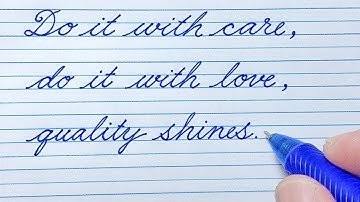 Do it with care,
do it with love,
quality shines.